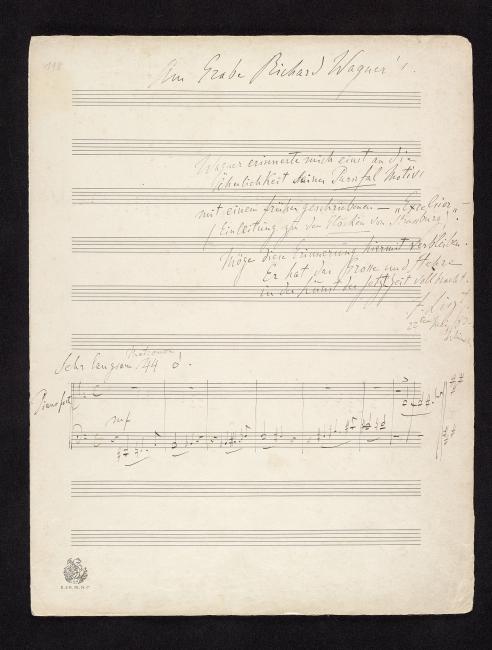 118
Am Grabe Richard Wagner's.
Wagner erinnerte mich einst an die
Ähnlichkeit seines Parsifal Motivs
mit einem früher geschriebenen — "Excelsior" —
(Einleitung zu den Glocken von Strassburg).
Möge diese Erinnerung hiermit verbleiben.
Er hat das Grosse und Hehre
in der Kunst der Jetztzeit vollbracht.
F. Liszt
22ten Mai, 83
Sehr langsam 44
Pianoforte
mf